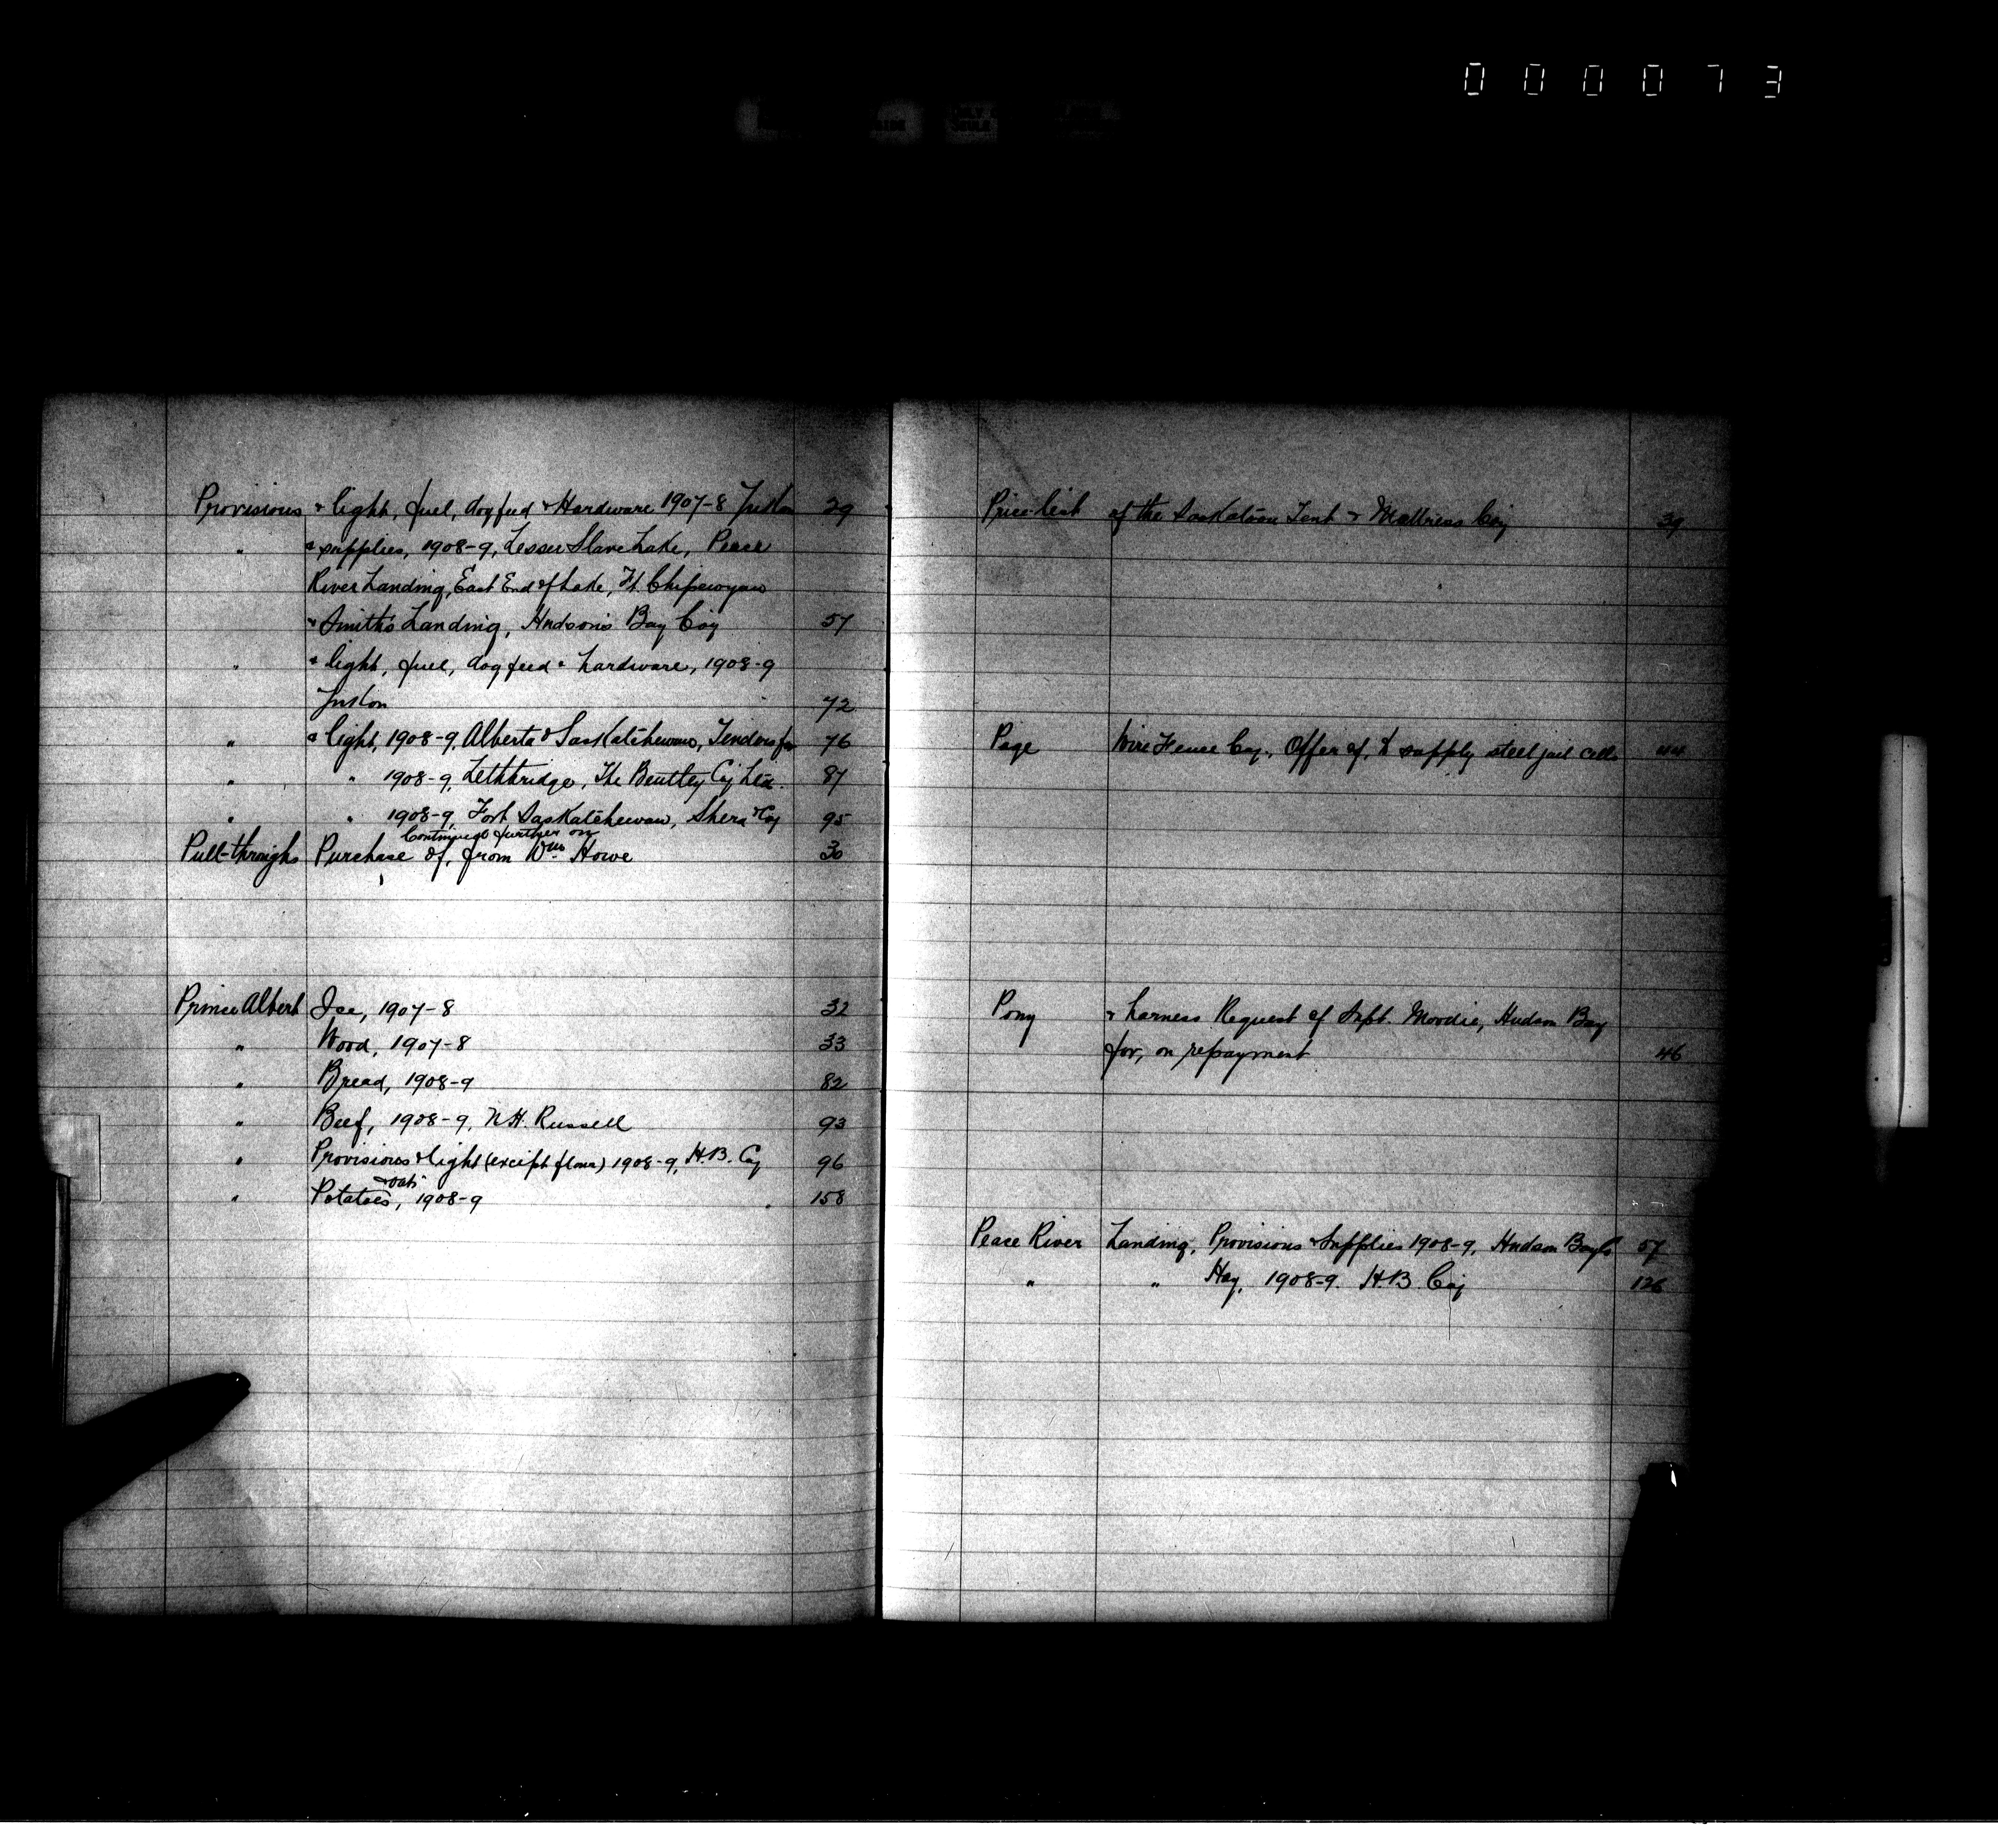 000073
Provisions & light, fuel, dog feed & Hardware 1907-8 Yukon 29
" & supplies, 1908-9, Lesser Slave Lake, Peace
River Landing, East End of Lake, Ft. Chipewyan
& Smith's Landing, Hudson's Bay Coy 57
" & light, fuel, dog feed & hardware, 1908-9
Yukon 72
" & light, 1908-9, Alberta & Saskatchewan, Tenders for 76
" " 1908-9, Lethbridge, The Bentley Coy Ltd. 87
" " 1908-9, Fort Saskatchewan, Shera & Coy 95
Continued further on
Pull-throughs Purchase of, from Wm. Howe 30
Prince Albert Ice, 1907-8 32
" Wood, 1907-8 33
" Bread, 1908-9 82
" Beef, 1908-9, N.H. Russell 93
" Provisions & light (except flour) 1908-9, H.B. Coy 96
" Potatoes & oats, 1908-9 158
Price-list of the Saskatoon Tent & Mattress Coy 39
Page Wire Fence Coy., Offer of, to supply steel jail cells 44
Pony & harness Request of Inspt. Moodie, Hudson Bay
for, on repayment 46
Peace River Landing, Provisions & Supplies 1908-9, Hudson Bay Co 57
" " Hay, 1908-9. H.B. Coy 126